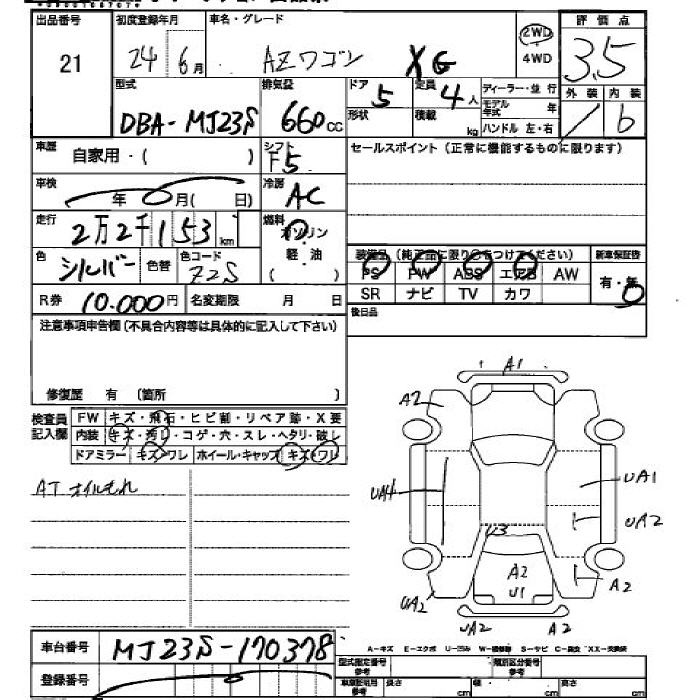 出品番号 初度登録年月 車名・グレード 評価点
21 24 6月 AZワゴン XG 2WD 4WD 3.5
型式 排気量 ドア 定員 ディーラー・並行 外装 内装
DBA-MJ23S 660cc 5 4人 モデル年式 年 / b
形状 積載 kg ハンドル 左・右
車歴 自家用・( ) シフト F5 セールスポイント(正常に機能するものに限ります)
車検 年 月( 日) 冷房 AC
走行 2万2千153km 燃料 ガソリン 軽・油 ( )
色 シルバー 色替 色コード Z2S
装備品(純正品に限り○をつけてください) 新車保証書
PS PW ABS エアB AW 有・無
SR ナビ TV カワ
R券 10.000円 名変期限 月 日 後日品
注意事項申告欄(不具合内容等は具体的に記入して下さい)
修復歴 有 〔箇所 〕
検査員記入欄 FW キズ・飛石・ヒビ割・リペア跡・X要
内装 キズ・汚レ・コゲ・穴・スレ・ヘタリ・破レ
ドアミラー キズ・ワレ ホイール・キャップ キズ・ワレ
AT オイルもれ
A1
A2
UA1
UA4
UA2
U3
A2
U1
A2
UA2
UA2 A2
車台番号 MJ23S-170378
A-キズ E-エクボ U-凹み W-補修跡 S-サビ C-腐食 XX-交換済
登録番号
型式指定番号 参考 類別区分番号 参考
車庫証明用 参考 長さ cm 幅 cm 高さ cm